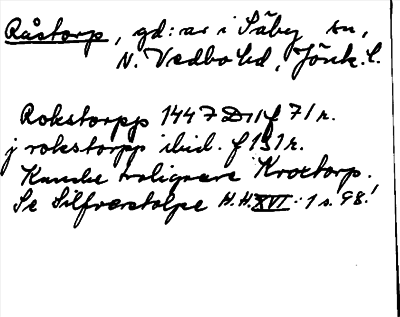 Råstorp, gd: ar i Säby sn,
N. Vedbo hd, Jönk. l.
Rokstorpp 1447 D11 f 71 r.
j rokstorpp ibid. f 131 r.
Kanske troligare Kroxtorp.
Se Silfverstolpe H.H. XVI: 1 s. 98!